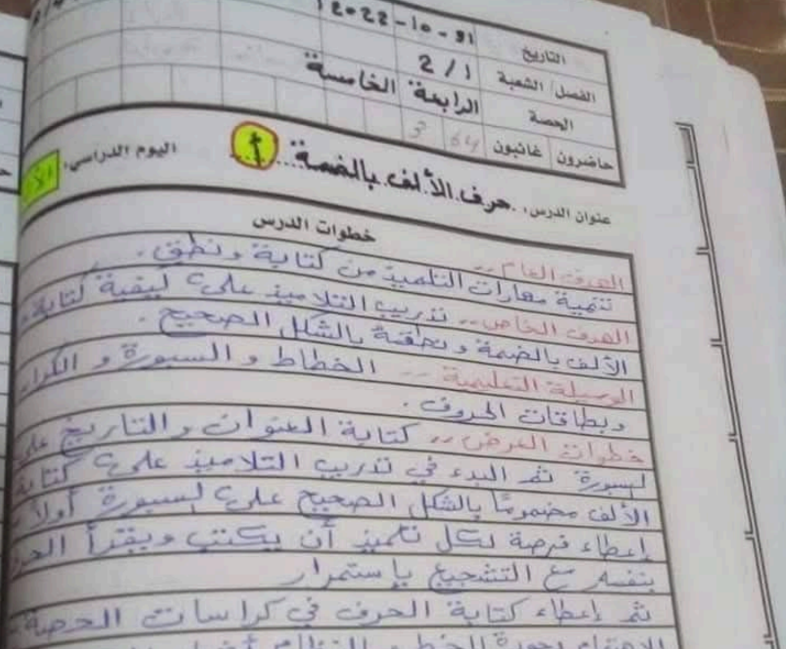 التاريخ 31-10-2022
الفصل/ الشعبة 2/1
الحصة الرابعة الخامسة
حاضرون 64 غائبون 3
عنوان الدرس: حرف الألف بالضمة أُ اليوم الدراسي:
خطوات الدرس
الهدف العام:- تنمية مهارات التلميذ من كتابة ونطق.
الهدف الخاص:- تدريب التلاميذ على كيفية كتابة
الألف بالضمة ونطقة بالشكل الصحيح.
الوسيلة التعليمية:- الخطاط و السبورة و
وبطاقات الحروف.
خطوات العرض:- كتابة العنوان والتاريخ على
لسبورة ثم البدء في تدريب التلاميذ على كتابة
الألف مضموماً بالشكل الصحيح على لسبورة أولاً
إعطاء فرصة لكل تلميذ أن يكتب ويقرأ
بنفسه مع التشجيع بإستمرار
ثم إعطاء كتابة الحرف في كراسات الحصة